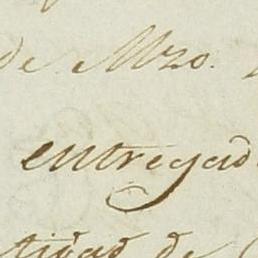 de Mzo.
entregad
tidad de